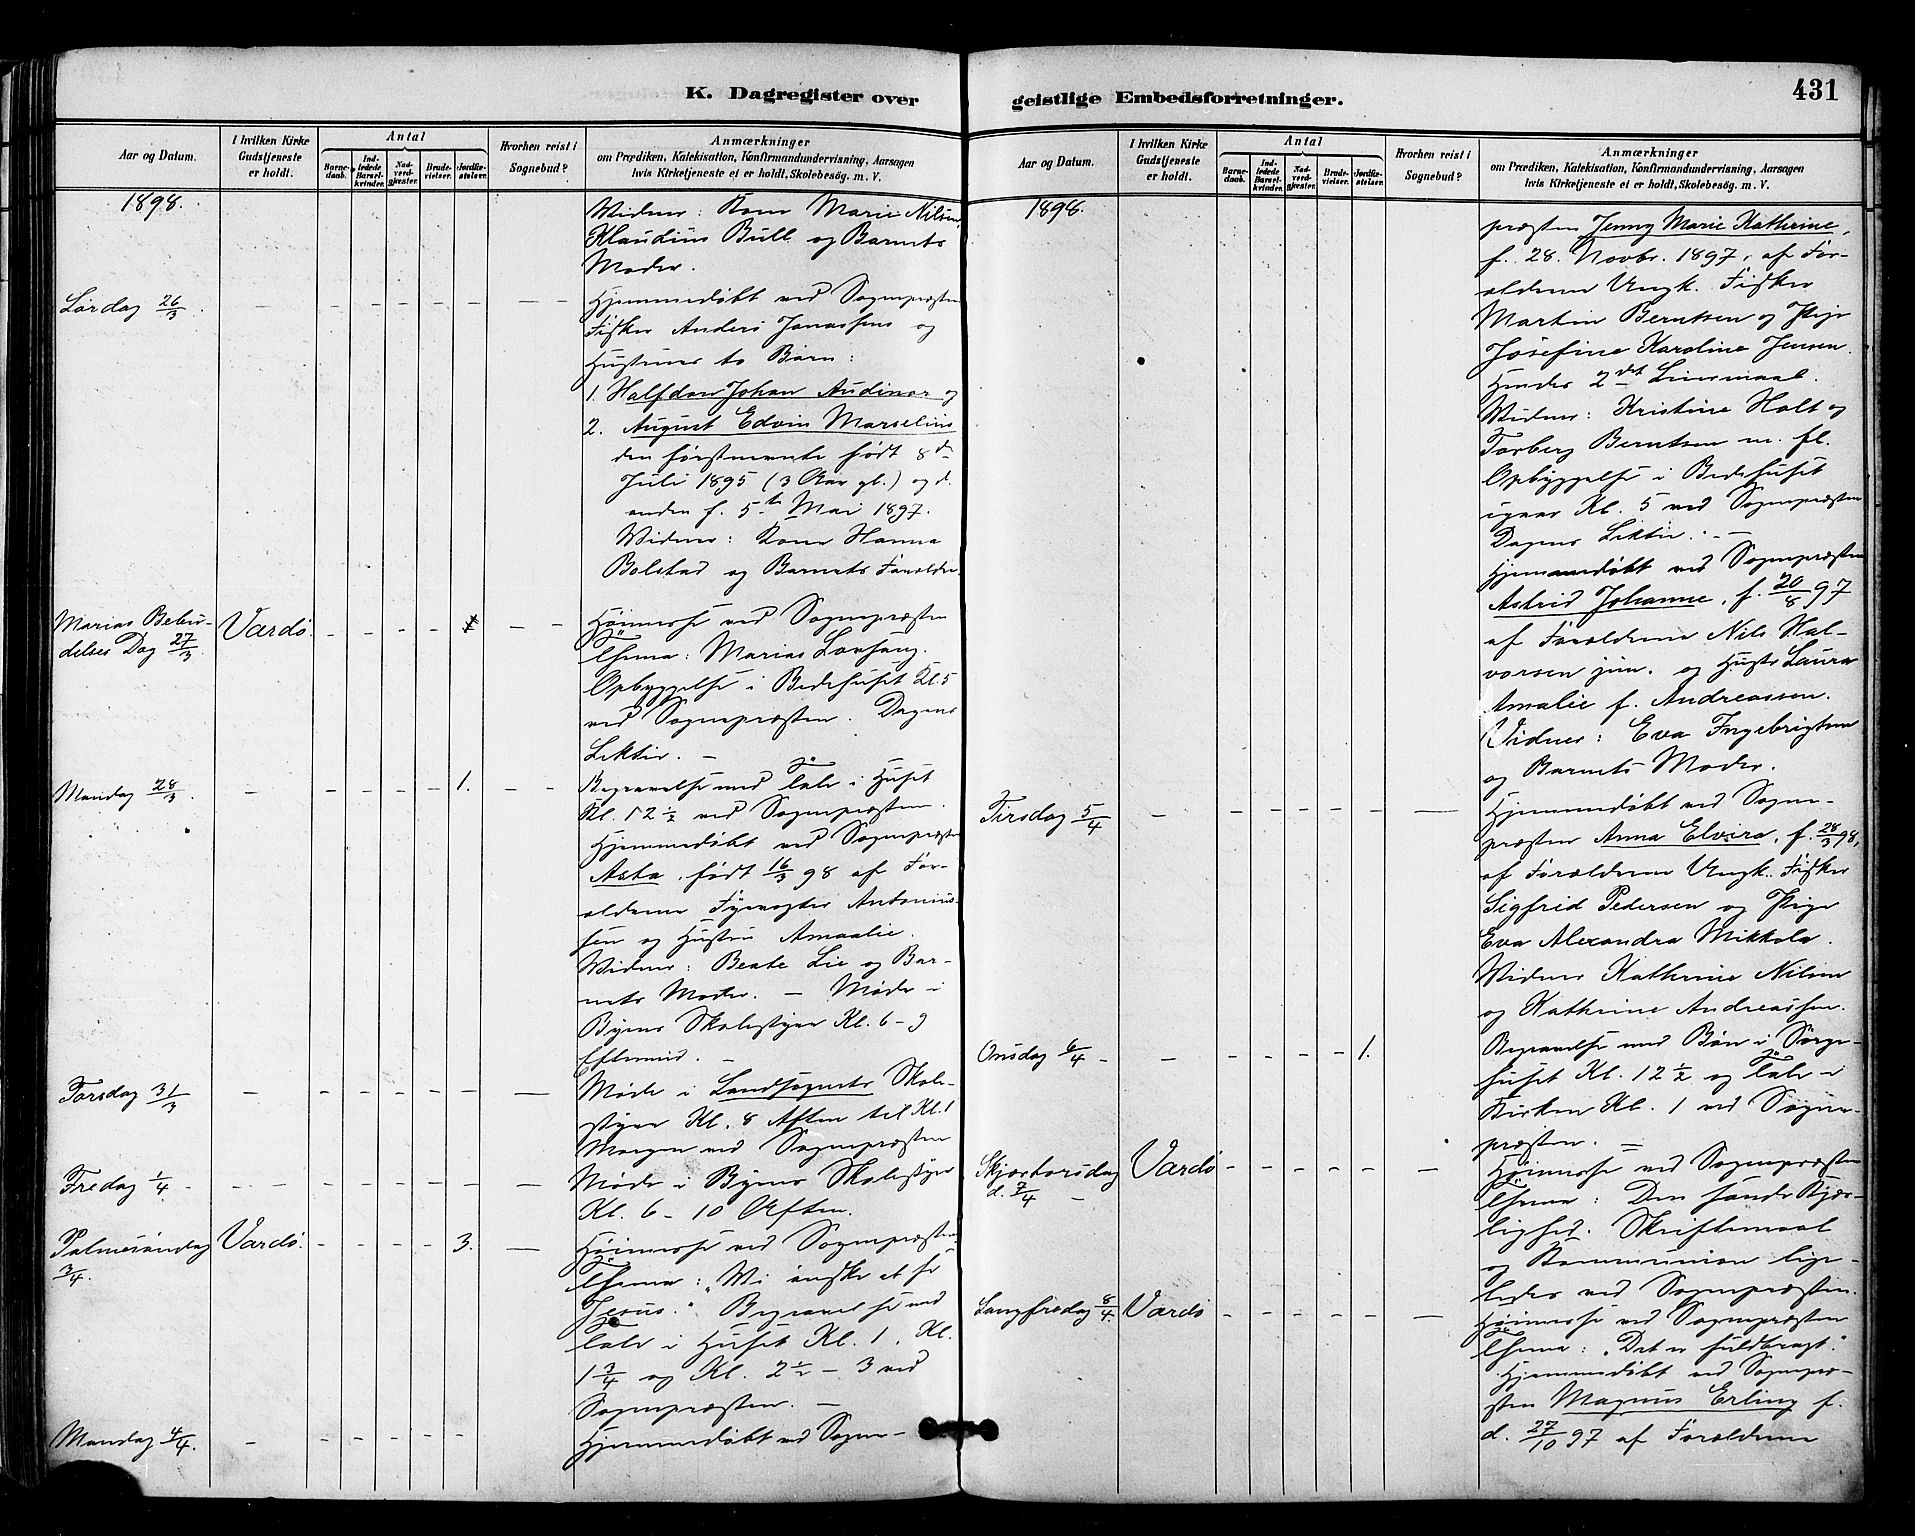 K. Dagregister over
geistlige Embedsforretninger.
431
Aar og Datum.
I hvilken Kirke Gudstjeneste er holdt.
Antal
Barnedaab.
Indledede Barselkvinder.
Nadverdgjester.
Brudevielser.
Jordfæstelser.
Hvorhen reist i Sognebud?
Anmærkninger
om Prædiken, Katekisation, Konfirmandundervisning, Aarsagen
hvis Kirketjeneste ei er holdt, Skolebesøg. m. V.
1898.
Widner: Kone Marie Nilsen,
Klaudius Bull og Barnets
Moder.
Lørdag 26/3 Hjemmedøbt ved Sognepræsten
Fisker Anders Jonassens og
Hustrues to Børn:
1. Halfdan Johan Audinor og
2. August Edvin Marselius
den førstnævnte født 8de
Juli 1895 (3 Aar gl.) og d.
anden f. 5te Mai 1897.
Widner: Kone Hanna
Bolstad og Barnets Forældre.
Marias Bebu- Vardø. Høimesse ved Sognepræsten
delses Dag 27/3. Thema: Marias Lovsang.
Opbyggelse i Bedehuset Kl. 5
ved Sognepræsten. Dagens
Lektie. –
Mandag 28/3. 1. Begravelse med Tale i Huset
Kl. 12 ½ ved Sognepræsten.
Hjemmedøbt ved Sognepræsten
Asta, født 16/3 98 af For-
ældrene Fyrvogter Antonius-
sen og Hustru Amaalie.
Widner: Beate Lie og Bar-
nets Moder. – Møde i
Byens Skolestyre Kl. 6 – 9
Eftermid. –
Torsdag 31/3 Møde i Landsognets Skole-
styre Kl. 8 Aften til Kl. 1
Morgen ved Sognepræsten
Fredag 1/4 Møde i Byens Skolestyre
Kl. 6 – 10 Aften.
Palmesøndag Vardø. 3. Høimesse ved Sognepræsten.
3/4. Thema: "Wi ønske at se
Jesus." Begravelse med
Tale i Huset Kl. 1, Kl.
1 ¾ og Kl. 2 ½ – 3 ved
Sognepræsten. –
Mandag 4/4. Hjemmedøbt ved Sogne-
Aar og Datum.
I hvilken Kirke Gudstjeneste er holdt.
Antal
Barnedaab.
Indledede Barselkvinder.
Nadverdgjester.
Brudevielser.
Jordfæstelser.
Hvorhen reist i Sognebud?
Anmærkninger
om Prædiken, Katekisation, Konfirmandundervisning, Aarsagen
hvis Kirketjeneste ei er holdt, Skolebesøg. m. V.
1898.
præsten Jenny Marie Kathrine,
f. 28. Novbr. 1897, af For-
ældrene Ungk. Fisker
Martin Berntsen og Pige
Josefine Karoline Jensen.
Hendes 2det Leiermaal.
Widner: Kristine Holt og
Torberg Berntsen m. fl.
Opbyggelse i Bedehuset
igaar Kl. 5 ved Sognepræsten
Dagens Lektie. –
Hjemmedøbt ved Sognepræsten
Astrid Johanne, f. 20/8 97
af Forældrene Nils Hal-
vorsen jun. og Hustr Laura
Amalie f. Andreassen.
Vidner: Eva Ingebrigtsen
og Barnets Moder.
Tirsdag 5/4 Hjemmedøbt ved Sogne-
præsten Anna Elvira, f. 28/3 98,
af Forældrene Ungk. Fisker
Sigfrid Pedersen og Pige
Eva Alexandra Mikkola.
Widner Kathrine Nilsen
og Kathrine Andreassen.
Onsdag 6/4 1. Begravelse med Bøn i Sørge-
huset Kl. 12 ½ og Tale i
Kirken Kl. 1 ved Sogne-
præsten. =
Skjærtorsdag Vardø Høimesse ved Sognepræsten
d. 7/4 Thema: Den sande Kjær-
lighed. Skriftemaal
og Kommunion lige-
ledes ved Sognepræsten.
Langfredag 8/4. Vardø Høimesse ved Sognepræsten
Thema: "Det er fuldbragt".
Hjemmedøbt ved Sognepræ-
sten Magnus Erling f.
d. 27/10 97 af Forældrene